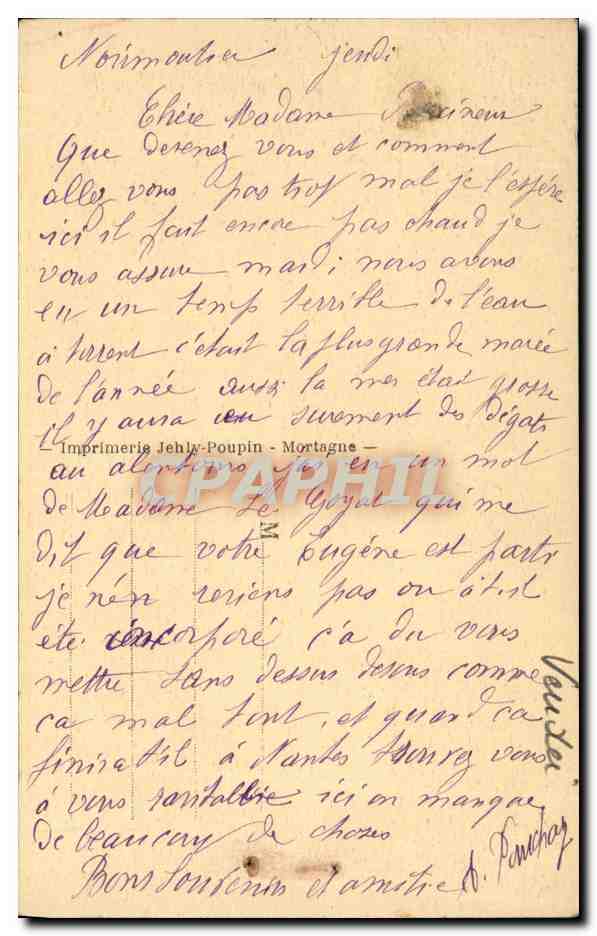 Noirmoutier jeudi
Chére Madame
Que devenez vous et comment
allez vous pas trop mal je l'éspére
ici il fait encore pas chaud je
vous assure mardi nous avons
eu un temp terrible de l'eau
a torrent c'était la plus grande marée
de l'année aussi la mer était grosse
il y aura eu surement des dégats
— Imprimerie Jehly-Poupin - Mortagne —
au alentours j'ai eu un mot
CPAPHIL
de Madame Le Goyat qui me
M
dit que votre Eugéne est parti
je n'en reviens pas ou a t il
été incorporé ç'a du vous
mettre sans dessus desous comme
ça mal tout, et quand ça
finira t'il à Nantes trouvez vous
à vous ravitallie ici on manque
de beaucoup de choses
Bons Souvenirs et amitie